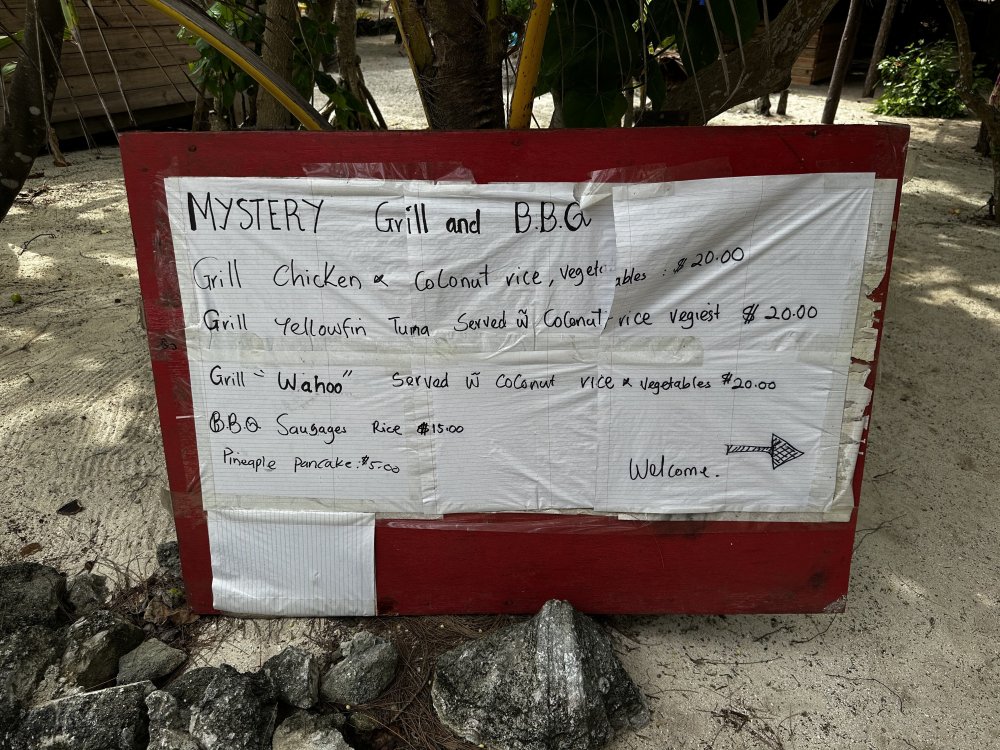 MYSTERY Grill and B.B.Q
Grill Chicken & Coconut rice, vegetables : $20.00
Grill Yellowfin Tuna Served w̃ Coconut rice vegiest $20.00
Grill "Wahoo" Served w̃ Coconut rice & vegetables $20.00
B.B.Q Sausages Rice $15.00
Pineapple pancake: $5.00
Welcome.